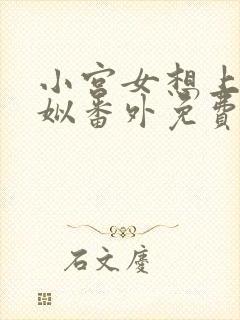 小宫女想上
姒番外免費
石文慶